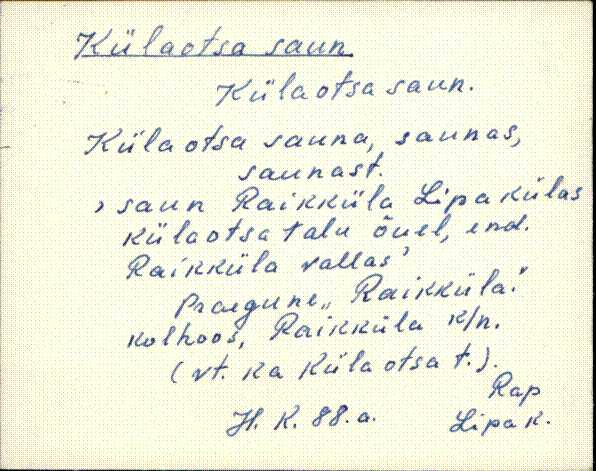 Külaotsa saun
Külaotsa saun.
Külaotsa sauna, saunas,
saunast.
, saun Raikküla Lipa külas
Külaotsa talu õuel, end.
Raikküla vallas'
Praegune „Raikküla"
kolhoos, Raikküla k/n.
(vt. ka Külaotsa t.).
Rap
H. K. 88. a.
Lipa k.